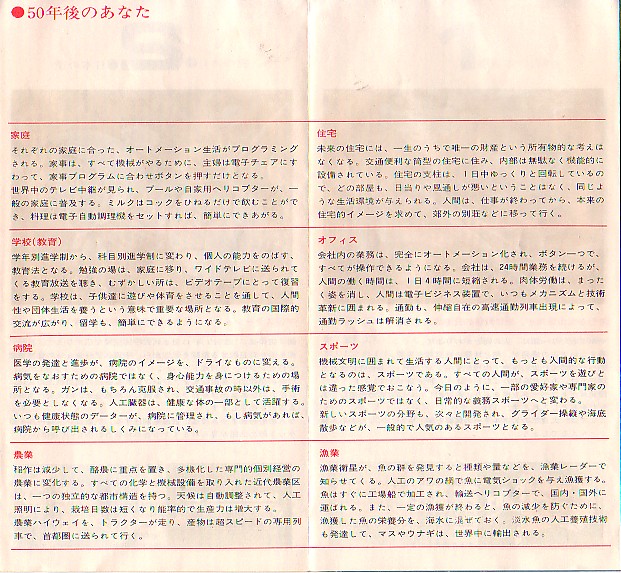 ●50年後のあなた
家庭
それぞれの家庭に合った、オートメーション生活がプログラミング
される。家事は、すべて機械がやるために、主婦は電子チェアにす
わって、家事プログラムに合わせボタンを押すだけとなる。
世界中のテレビ中継が見られ、プールや自家用ヘリコプターが、一
般の家庭に普及する。ミルクはコックをひねるだけで飲むことがで
き、料理は電子自動調理機をセットすれば、簡単にできあがる。
学校(教育)
学年別進学制から、科目別進学制に変わり、個人の能力をのばす、
教育法となる。勉強の場は、家庭に移り、ワイドテレビに送られて
くる教育放送を聴き、むずかしい所は、ビデオテープにとって復習
をする。学校は、子供達に遊びや体育をさせることを通して、人間
性や団体生活を養うという意味で重要な場所となる。教育の国際的
交流が広がり、留学も、簡単にできるようになる。
病院
医学の発達と進歩が、病院のイメージを、ドライなものに変える。
病気をなおすための病院ではなく、身心能力を身につけるための場
所となる。ガンは、もちろん克服され、交通事故の時以外は、手術
を必要としなくなる。人工臓器は、健康な体の一部として活躍する。
いつも健康状態のデーターが、病院に管理され、もし病気があれば、
病院から呼び出されるしくみになっている。
農業
稲作は減少して、酪農に重点を置き、多様化した専門的個別経営の
農業に変化する。すべての化学と機械設備を取り入れた近代農業区
は、一つの独立的な都市構造を持つ。天候は自動調整されて、人工
照明により、栽培日数は短くなり能率的で生産力は増大する。
農業ハイウェイを、トラクターが走り、産物は超スピードの専用列
車で、首都圏に送られて行く。
住宅
未来の住宅には、一生のうちで唯一の財産という所有物的な考えは
なくなる。交通便利な筒型の住宅に住み、内部は無駄なく機能的に
設備されている。住宅の支柱は、1日中ゆっくりと回転しているの
で、どの部屋も、日当りや風通しが悪いということはなく、同じよ
うな生活環境が与えられる。人間は、仕事が終わってから、本来の
住宅的イメージを求めて、郊外の別荘などに移って行く。
オフィス
会社内の業務は、完全にオートメーション化され、ボタン一つで、
すべてが操作できるようになる。会社は、24時間業務を続けるが、
人間の働く時間は、1日4時間に短縮される。肉体労働は、まった
く姿を消し、人間は電子ビジネス装置で、いつもメカニズムと技術
革新に囲まれる。通勤も、伸縮自在の高速通勤列車出現によって、
通勤ラッシュは解消される。
スポーツ
機械文明に囲まれて生活する人間にとって、もっとも人間的な行動
となるのは、スポーツである。すべての人間が、スポーツを遊びと
は違った感覚でおこなう。今日のように、一部の愛好家や専門家の
ためのスポーツではなく、日常的な義務スポーツへと変わる。
新しいスポーツの分野も、次々と開発され、グライダー操縦や海底
散歩などが、一般的で人気のあるスポーツとなる。
漁業
漁業衛星が、魚の群を発見すると種類や量などを、漁業レーダーで
知らせてくる。人工のアワの網で魚に電気ショックを与え漁獲する。
魚はすぐに工場船で加工され、輸送ヘリコプターで、国内・国外に
運ばれる。また、一定の漁獲が終わると、魚の減少を防ぐために、
漁獲した魚の栄養分を、海水に混ぜておく。淡水魚の人工養殖技術
も発達して、マスやウナギは、世界中に輸出される。